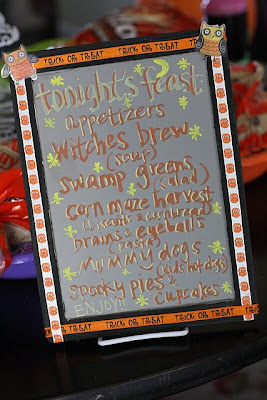 OR TREAT TRICK OR TREAT
tonight's feast
appetizers
witches brew
(soup)
swamp greens
(salad)
corn maze harvest
(biscuits & cornbread)
brains & eyeballs
(pasta)
mummy dogs
(kids hotdogs)
spooky pies &
ENJOY!! cupcakes
OR TREAT TRICK OR TREAT TRICK OR